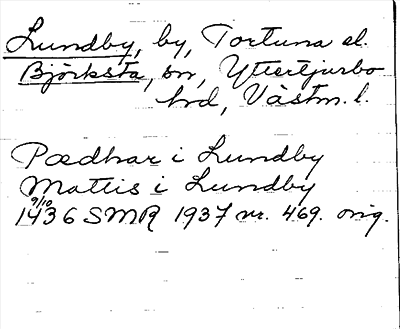 Lundby, by, Tortuna el.
Björksta, sn, Yttertjurbo
hd, Västm. l.
Pædhar i Lundby
Mattis i Lundby
9/10
1436 SMR 1937 nr. 469. orig.